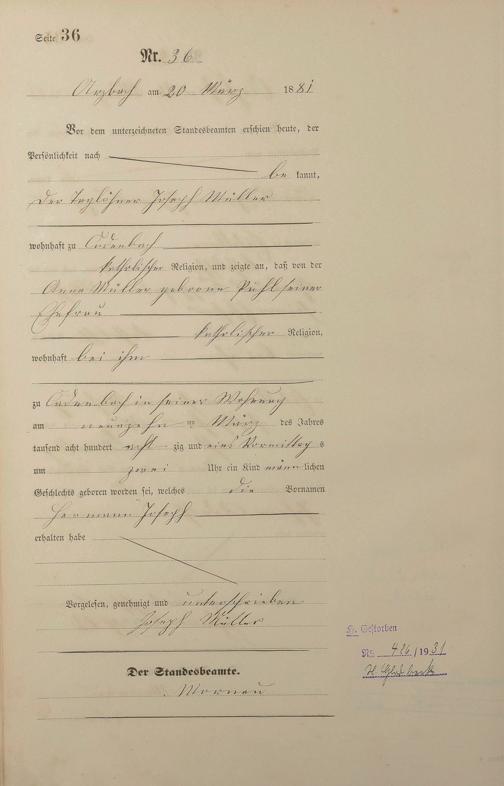 Seite 36
Nr. 36
Arzbach am 20 März 1881
Vor dem unterzeichneten Standesbeamten erschien heute, der
Persönlichkeit nach
be kannt,
der Taglöhner Joseph Müller
wohnhaft zu Cadenbach
katholischer Religion, und zeigte an, daß von der
Anna Müller geborene Pühl seiner
Ehefrau
katholischer Religion,
wohnhaft bei ihm
zu Cadenbach in seiner Wohnung
am neunzehn ten März des Jahres
tausend acht hundert acht zig und eins Vormittag s
um zwei Uhr ein Kind männ lichen
Geschlechts geboren worden sei, welches die Vornamen
Hermann Joseph
erhalten habe
Vorgelesen, genehmigt und unterschrieben
Joseph Müller
Der Standesbeamte.
Gestorben
Nr. 426/1931